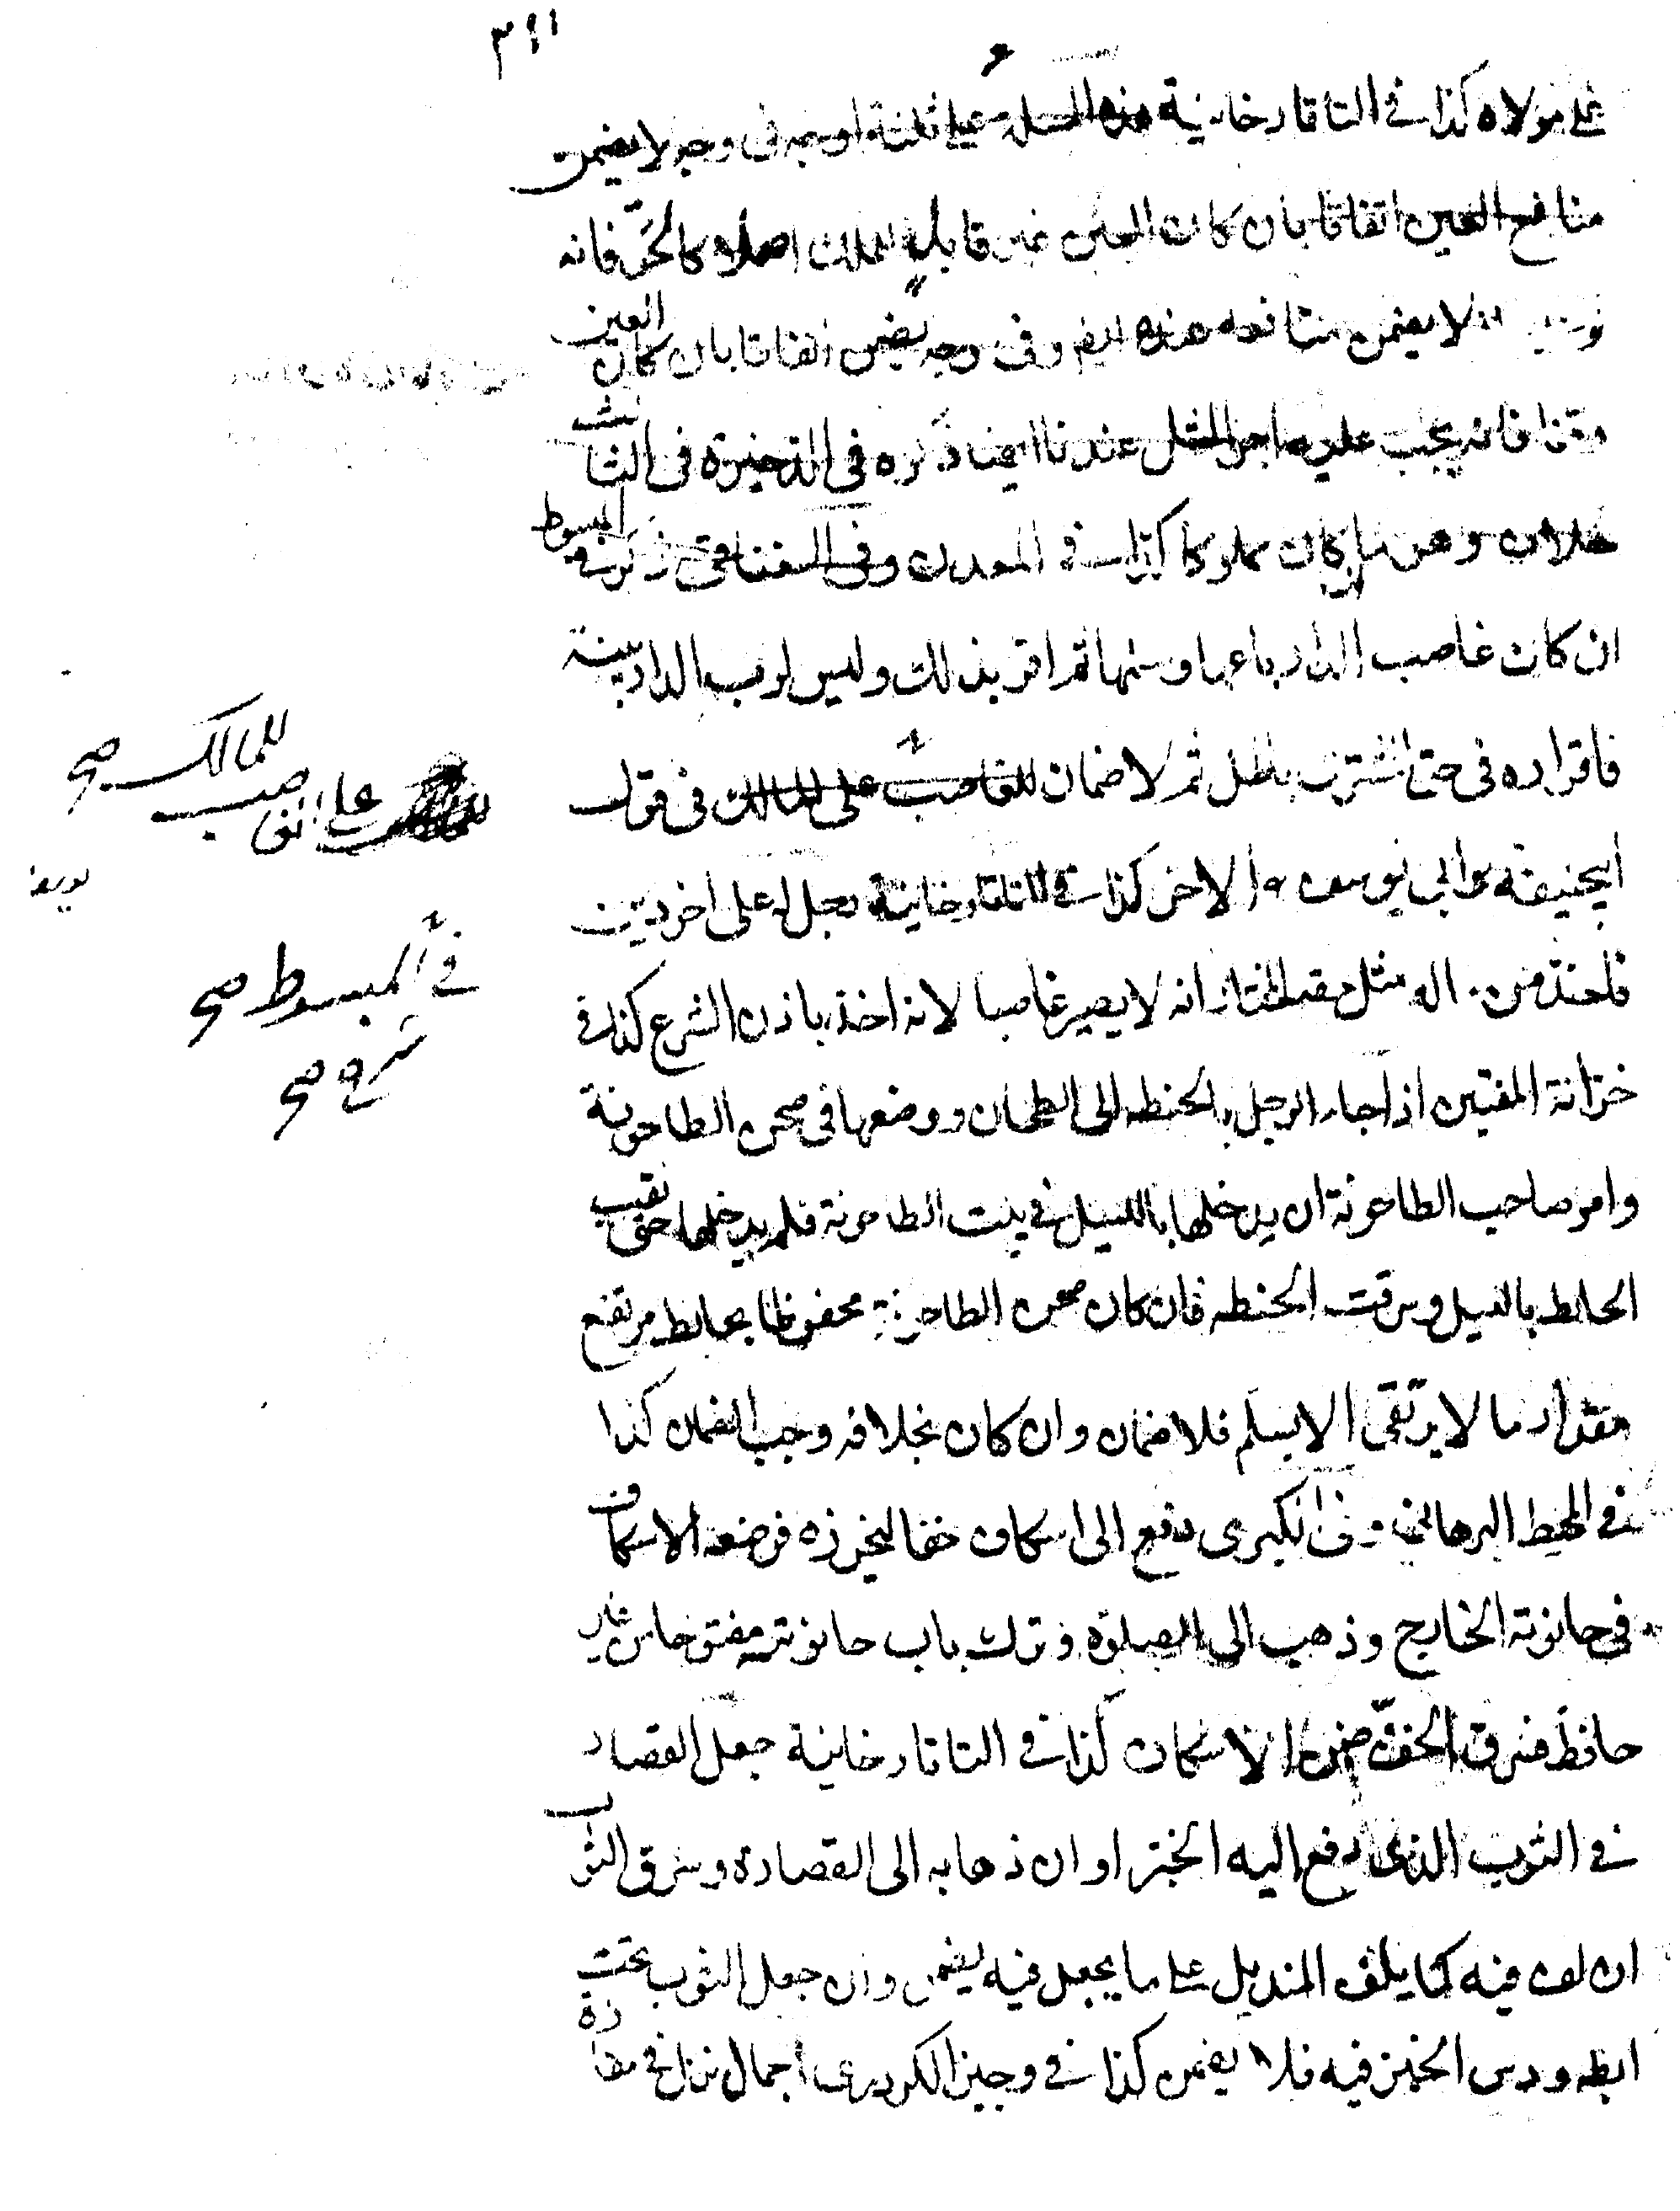 ٣١١
على مولاه كذا في التاتارخانية هذه المسئلة على ثلثة اوجه في وجه لا يضمن
منافع العين اتفاقا بان كان العين غير قابلة للملك اصلا كالحر فانه
لا يضمن منافعه عندهم وفي وجه يضمن اتفاقا بان كان العين
وقفا فانه يجب عليه اجر المثل عندنا ايضا ذكره في الذخيرة في الثالث
خلاف وهو ما كان مملوكا كذا في المعدن وفي السغناقي ذكر في المبسوط
ان كان غاصب الدار باعها وسلمها ثم اقر بذلك وليس لرب الدار بينة
فاقراره في حق المشتري باطل ثم لا ضمان للغاصب على المالك في قول
ابيحنيفة وابي يوسف الاخر كذا في التاتارخانية رجل له على اخر دين
فاخذ من ماله مثل حقه المختار انه لا يصير غاصبا لانه اخذ باذن الشرع كذا في
خزانة المفتين اذا جاء الرجل بالحنطه الى الطحان ووضعها في صحن الطاحونة
وامر صاحب الطاحونة ان يدخلها بالليل في بيت الطاحونة فلم يدخلها حتى نقب
الحائط بالليل وسرقت الحنطه فان كان صحن الطاحونة محفوظا بحائط مرتفع
مقدار ما لا يرتقى الا بسلم فلا ضمان وان كان بخلافه وجب الضمان كذا
في المحيط البرهاني وفي الكبرى دفع الى اسكاف خفا ليخرزه فوضعه الاسكاف
في حانوته الخارج وذهب الى الصلوة وترك باب حانوته مفتوحا من غير
حافظ فسرق الخف ضمن الاسكاف كذا في التاتارخانية جعل القصار
في الثوب الذي دفع اليه الخبز اوان ذهابه الى القصارة وسرق الثوب
ان لف فيه كما يلف المنديل على ما يجعل فيه يضمن وان جعل الثوب تحت
ابطه ودس الخبز فيه فلا يضمن كذا في وجيز الكردري احمال نزل في مفازة
للمالك صح
على الغاصب
في المبسوط صح